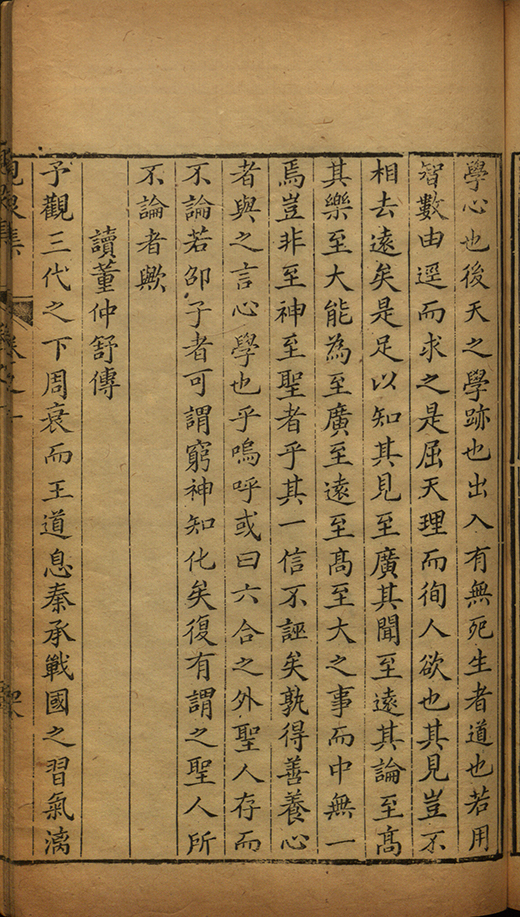 學心也後天之學跡也出入有無死生者道也若用
智數由逕而求之是屈天理而徇人欲也其見豈不
相去遠矣是足以知其見至廣其聞至遠其論至髙
其樂至大能為至廣至遠至髙至大之事而中無一
焉豈非至神至聖者乎其一信不誣矣孰得善養心
者與之言心學也乎嗚呼或曰六合之外聖人存而
不論若邵子者可謂窮神知化矣復有謂之聖人所
不論者歟
讀董仲舒傳
予觀三代之下周衰而王道息秦承戰國之習氣漓